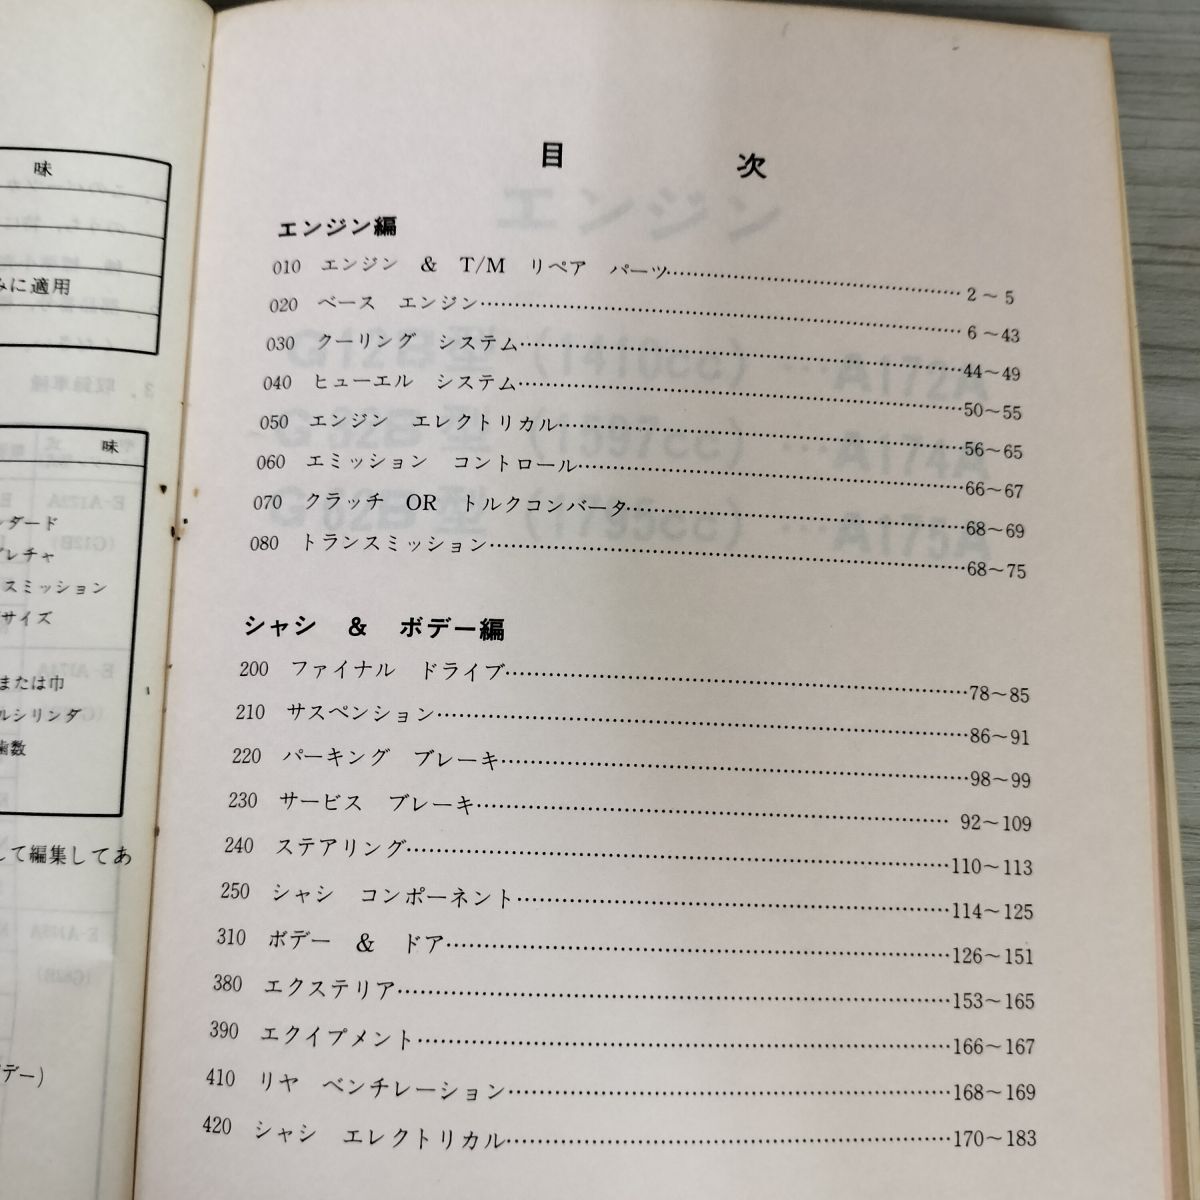 味
みに適用
味
ンダード
プレチャ
スミッション
サイズ
または巾
ルシリンダ
歯数
して編集してあ
デー)
目 次
エンジン編
010 エンジン & T/M リペア パーツ……2～5
020 ベース エンジン……6～43
030 クーリング システム……44～49
040 ヒューエル システム……50～55
050 エンジン エレクトリカル……56～65
060 エミッション コントロール……66～67
070 クラッチ OR トルクコンバータ……68～69
080 トランスミッション……68～75
シャシ & ボデー編
200 ファイナル ドライブ……78～85
210 サスペンション……86～91
220 パーキング ブレーキ……98～99
230 サービス ブレーキ……92～109
240 ステアリング……110～113
250 シャシ コンポーネント……114～125
310 ボデー & ドア……126～151
380 エクステリア……153～165
390 エクイプメント……166～167
410 リヤ ベンチレーション……168～169
420 シャシ エレクトリカル……170～183
エンジン
G12B型 (1410cc) … A172A
G32B型 (1597cc) … A174A
G62B型 (1795cc) … A175A